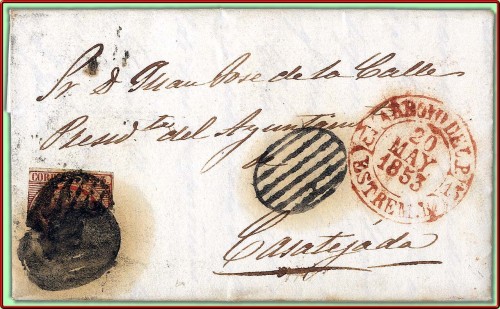 Sr. D. Juan Jose de la Calle
Presid.te del Ayuntam.to
de
Casatejada
CORREOS
ARROYO DEL P.
20
MAY
1853
ESTREMA